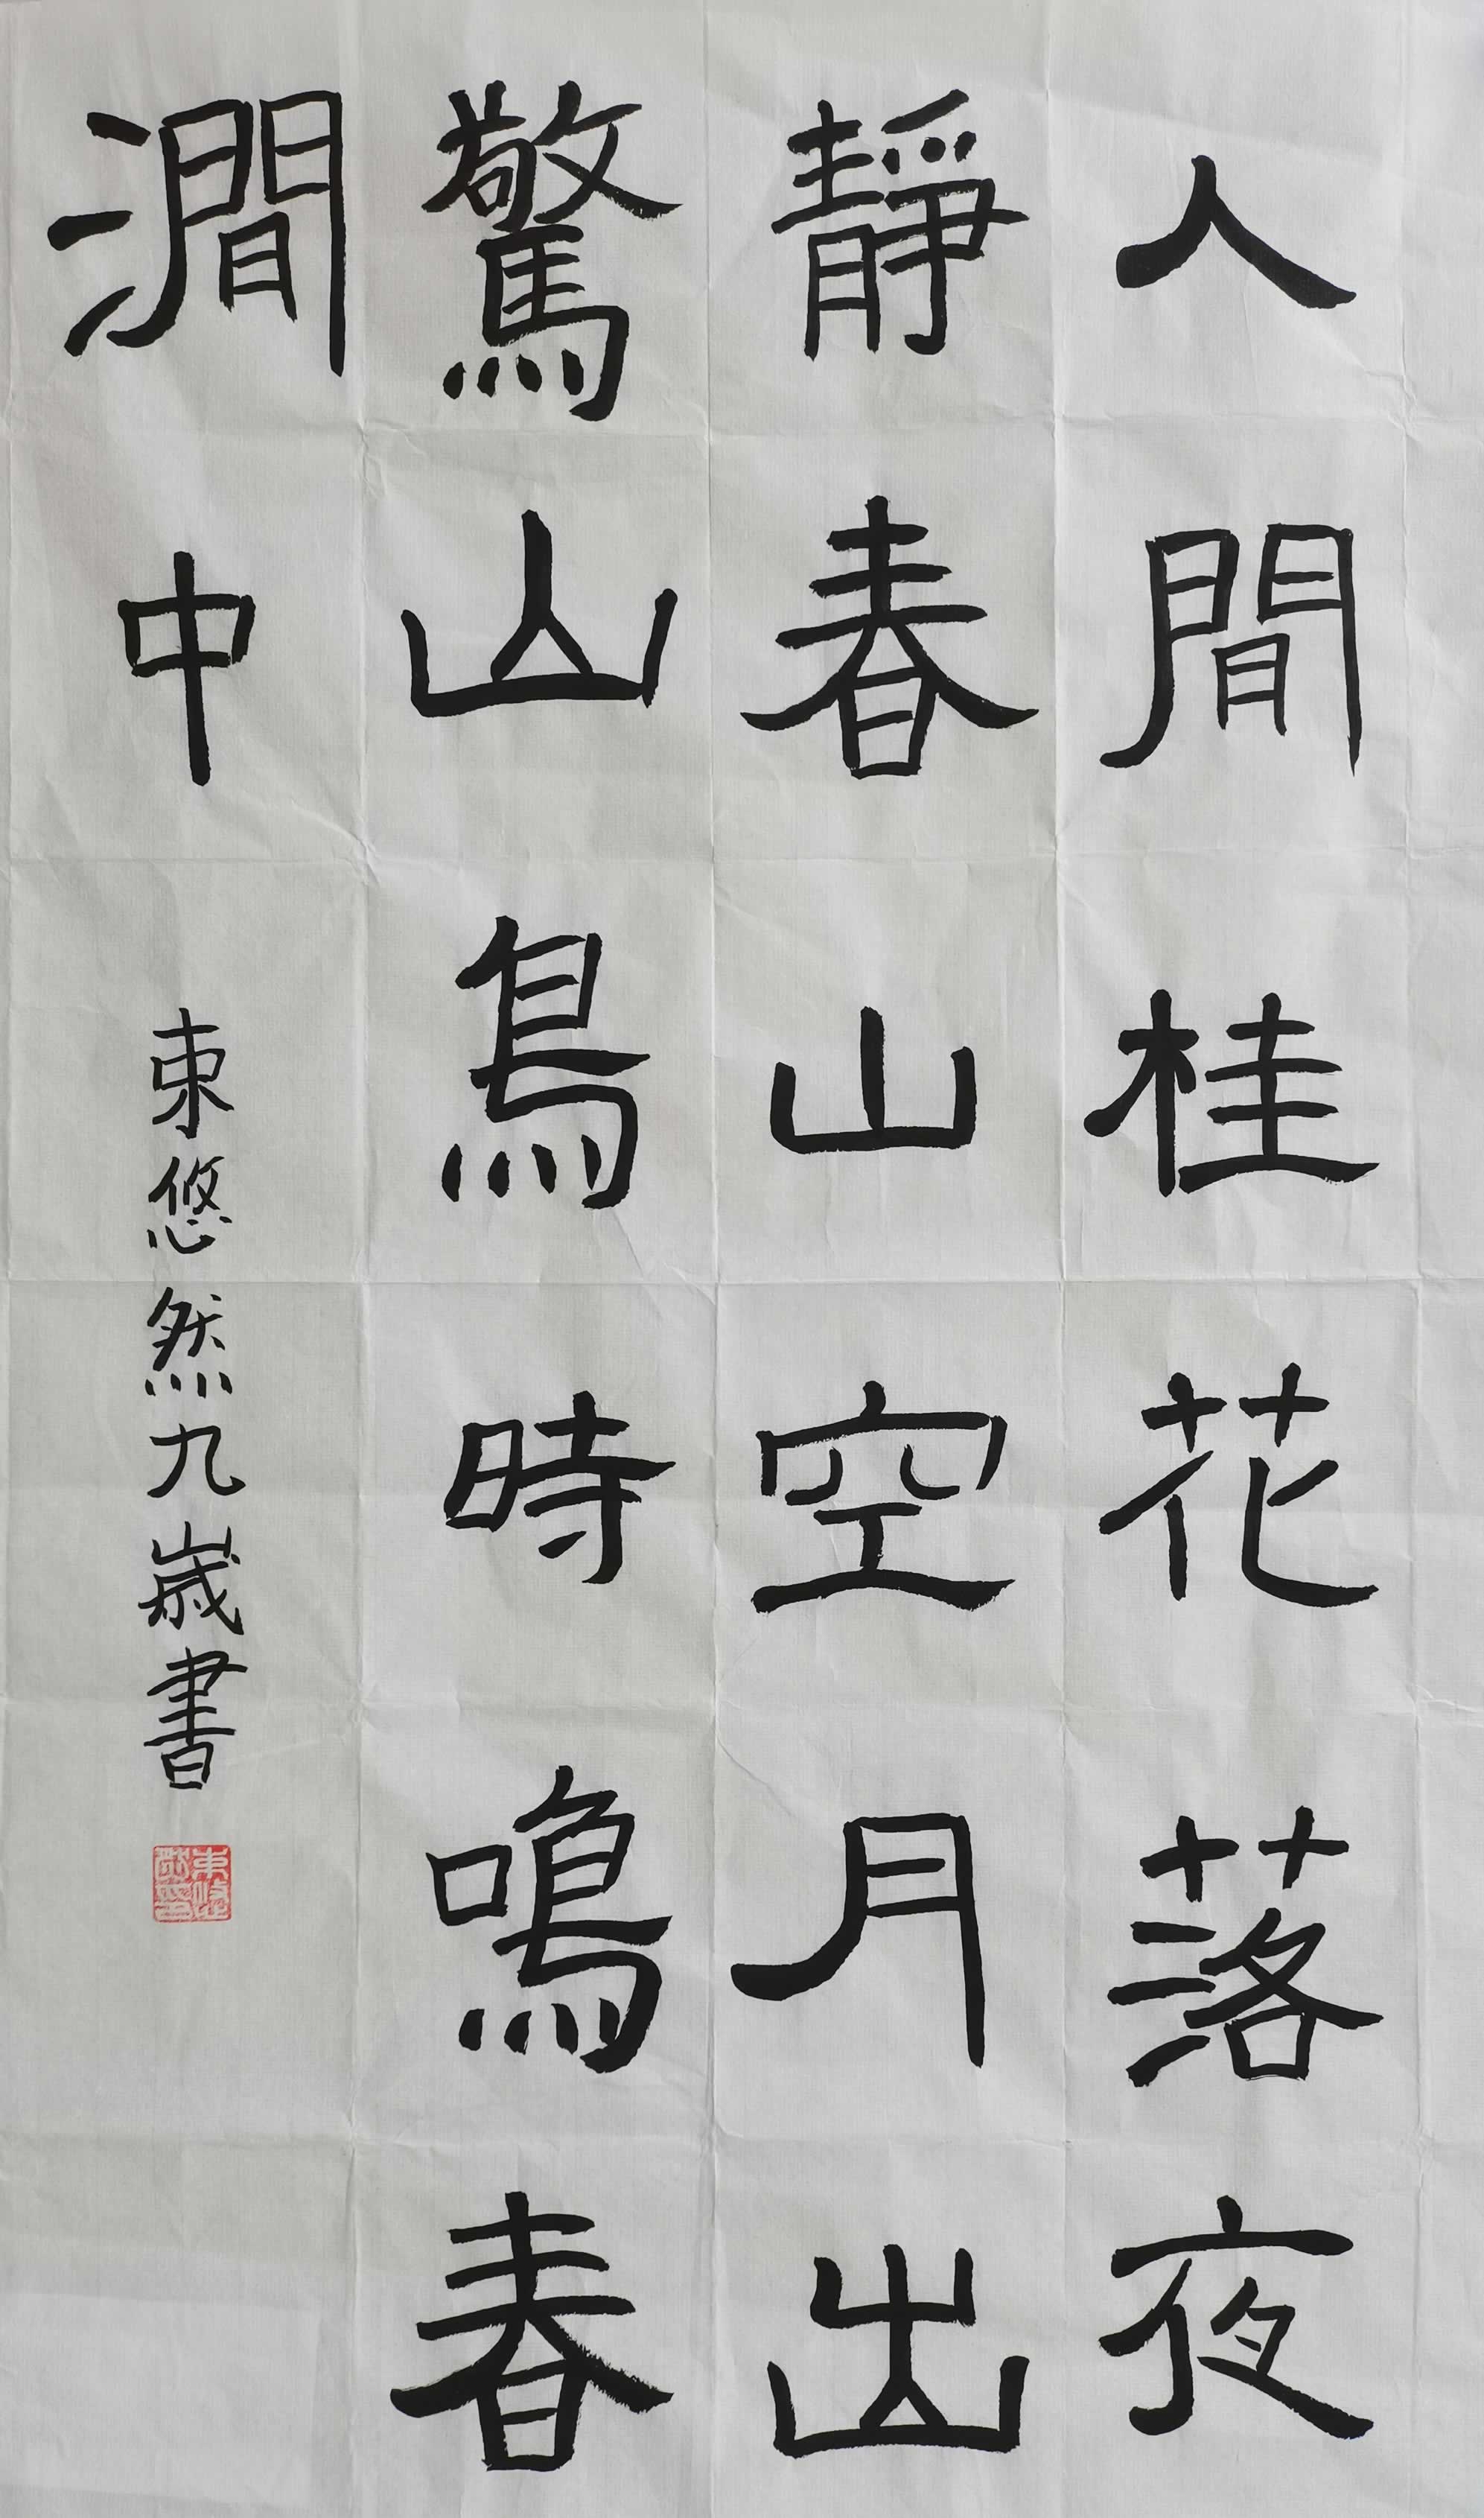 人間桂花落夜
靜春山空月出
驚山鳥時鳴春
澗中
束悠然九歲書